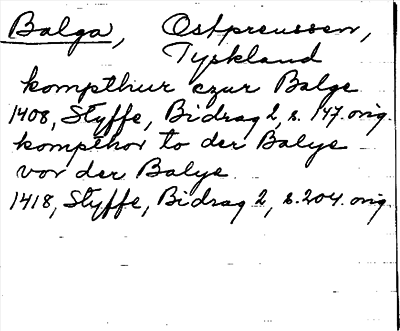 Balga, Ostpreussen,
Tyskland
kompthur czur Balge
1408, Styffe, Bidrag 2, s. 147. orig.
kompthor to der Balye
vor der Balye
1418, Styffe, Bidrag 2, s. 204. orig.